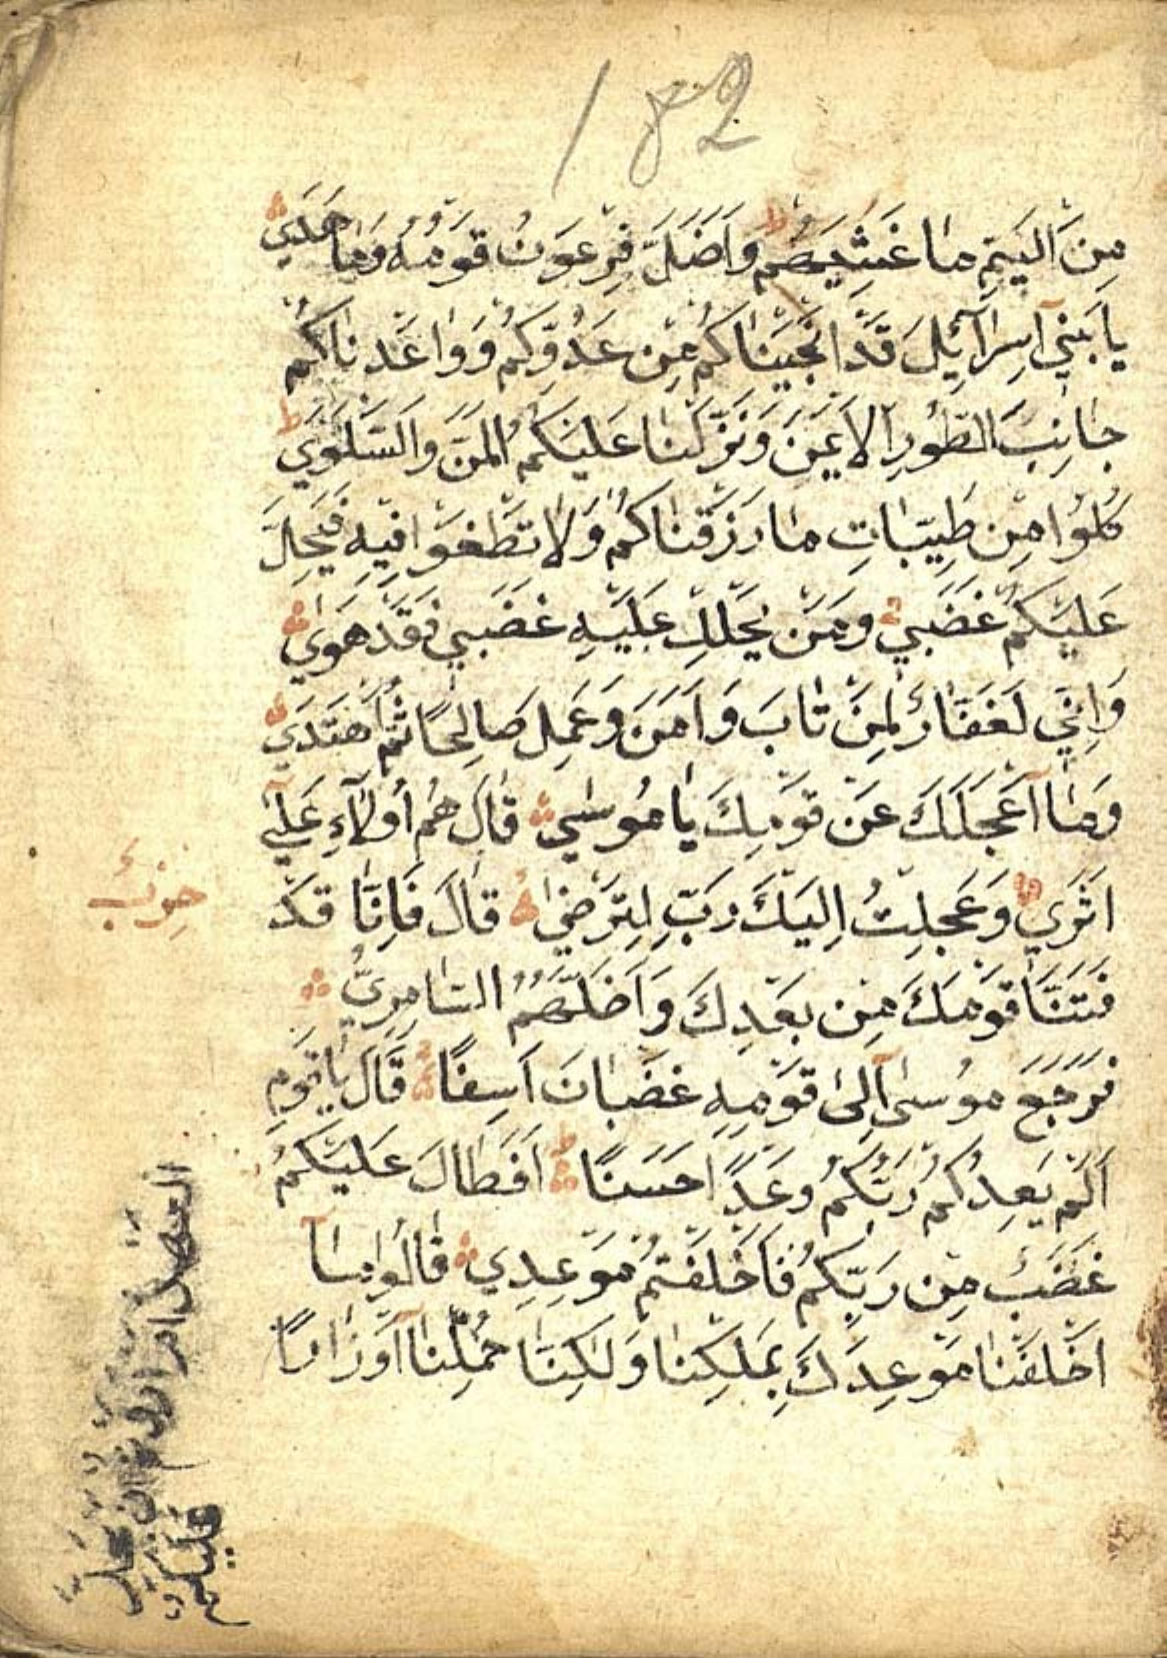 ١٨٢
مِنَ الْيَمِّ مَا غَشِيَهُمْ وَاَضَلَّ فِرْعَوْنُ قَوْمَهُ وَمَا هَدٰي
يَا بَنِي اِسْرَآئِلَ قَدْ اَنْجَيْنَاكُمْ مِنْ عَدُوِّكُمْ وَوَاعَدْنَاكُمْ
جَانِبَ الطُّورِ الْاَيْمَنَ وَنَزَّلْنَا عَلَيْكُمُ الْمَنَّ وَالسَّلْوٰي ط
كُلُوا مِنْ طَيِّبَاتِ مَا رَزَقْنَاكُمْ وَلَا تَطْغَوْا فِيهِ فَيَحِلَّ
عَلَيْكُمْ غَضَبِي وَمَنْ يَحْلِلْ عَلَيْهِ غَضَبِي فَقَدْ هَوٰي
وَاِنِّي لَغَفَّارٌ لِمَنْ تَابَ وَاٰمَنَ وَعَمِلَ صَالِحًا ثُمَّ اهْتَدٰي
وَمَا اَعْجَلَكَ عَنْ قَوْمِكَ يَا مُوسٰي قَالَ هُمْ اُولَاءِ عَلٰي
اَثَرِي وَعَجِلْتُ اِلَيْكَ رَبِّ لِتَرْضٰي قَالَ فَاِنَّا قَدْ
فَتَنَّا قَوْمَكَ مِنْ بَعْدِكَ وَاَضَلَّهُمُ السَّامِرِيُّ
فَرَجَعَ مُوسٰى اِلٰى قَوْمِهِ غَضْبَانَ اَسِفًا قَالَ يَا قَوْمِ
اَلَمْ يَعِدْكُمْ رَبُّكُمْ وَعْدًا حَسَنًا ط اَفَطَالَ عَلَيْكُمُ
غَضَبٌ مِنْ رَبِّكُمْ فَاَخْلَفْتُمْ مَوْعِدِي قَالُوا مَا
اَخْلَفْنَا مَوْعِدَكَ بِمَلْكِنَا وَلٰكِنَّا حُمِّلْنَا اَوْزَارًا
حزب
العهد ام اردتم ان يحل
عليكم